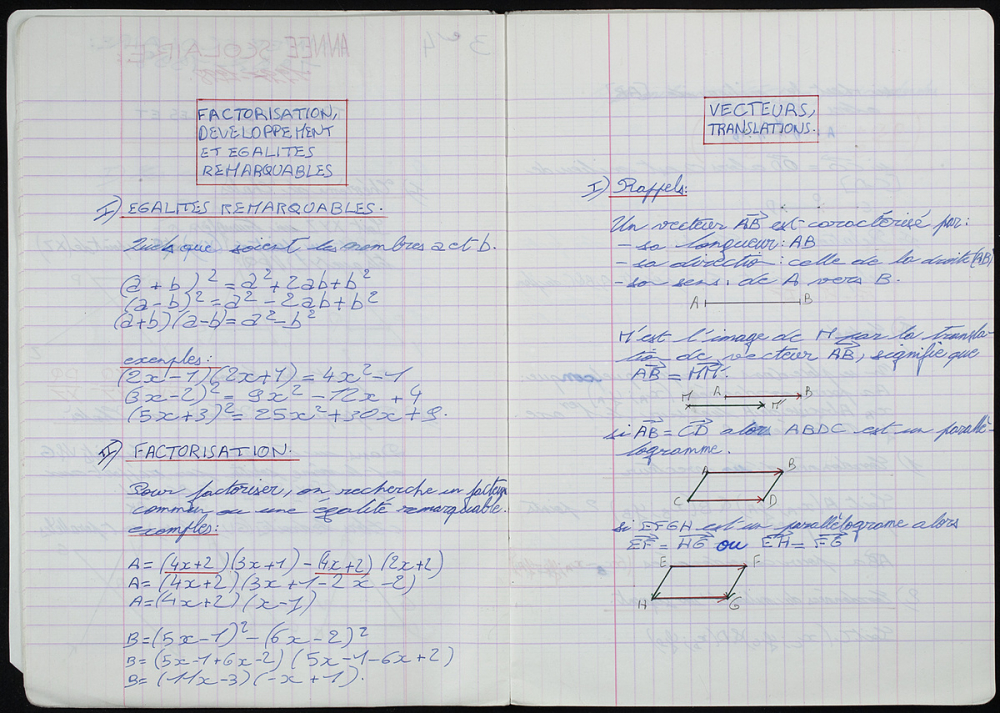 FACTORISATION,
DEVELOPPEMENT
ET EGALITES
REMARQUABLES
I) EGALITES REMARQUABLES.
Quels que soient les nombres a et b.
(a+b)² = a²+2ab+b²
(a-b)² = a²-2ab+b²
(a+b)(a-b) = a²-b²
exemples:
(2x-1)(2x+1) = 4x²-1
(3x-2)² = 9x²-12x+4
(5x+3)² = 25x²+30x+9.
II) FACTORISATION.
Pour factoriser, on recherche un facteur
commun ou une égalité remarquable.
exemples:
A = (4x+2)(3x+1) - (4x+2)(2x+2)
A = (4x+2)(3x+1-2x-2)
A = (4x+2)(x-1)
B = (5x-1)² - (6x-2)²
B = (5x-1+6x-2)(5x-1-6x+2)
B = (11x-3)(-x+1).
VECTEURS,
TRANSLATIONS.
I) Rappels:
Un vecteur AB est caractérisé par:
- sa longueur: AB
- sa direction: celle de la droite (AB)
- son sens: de A vers B.
A B
M' est l'image de M par la transla-
tion de vecteur AB, signifie que
AB = MM'.
A B
M M'
si AB = CD alors ABDC est un parallé-
logramme.
A B
C D
si EFGH est un parallélograme alors
EF = HG ou EH = FG
E F
H G